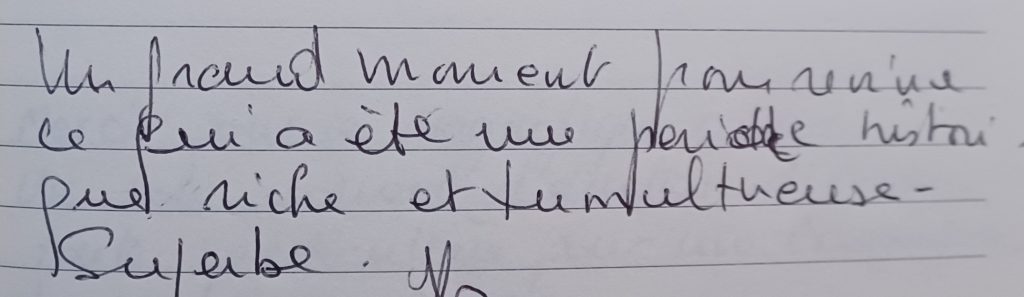 Un grand moment pour revivre
ce qui a été une période histori
que riche et tumultueuse-
Superbe.